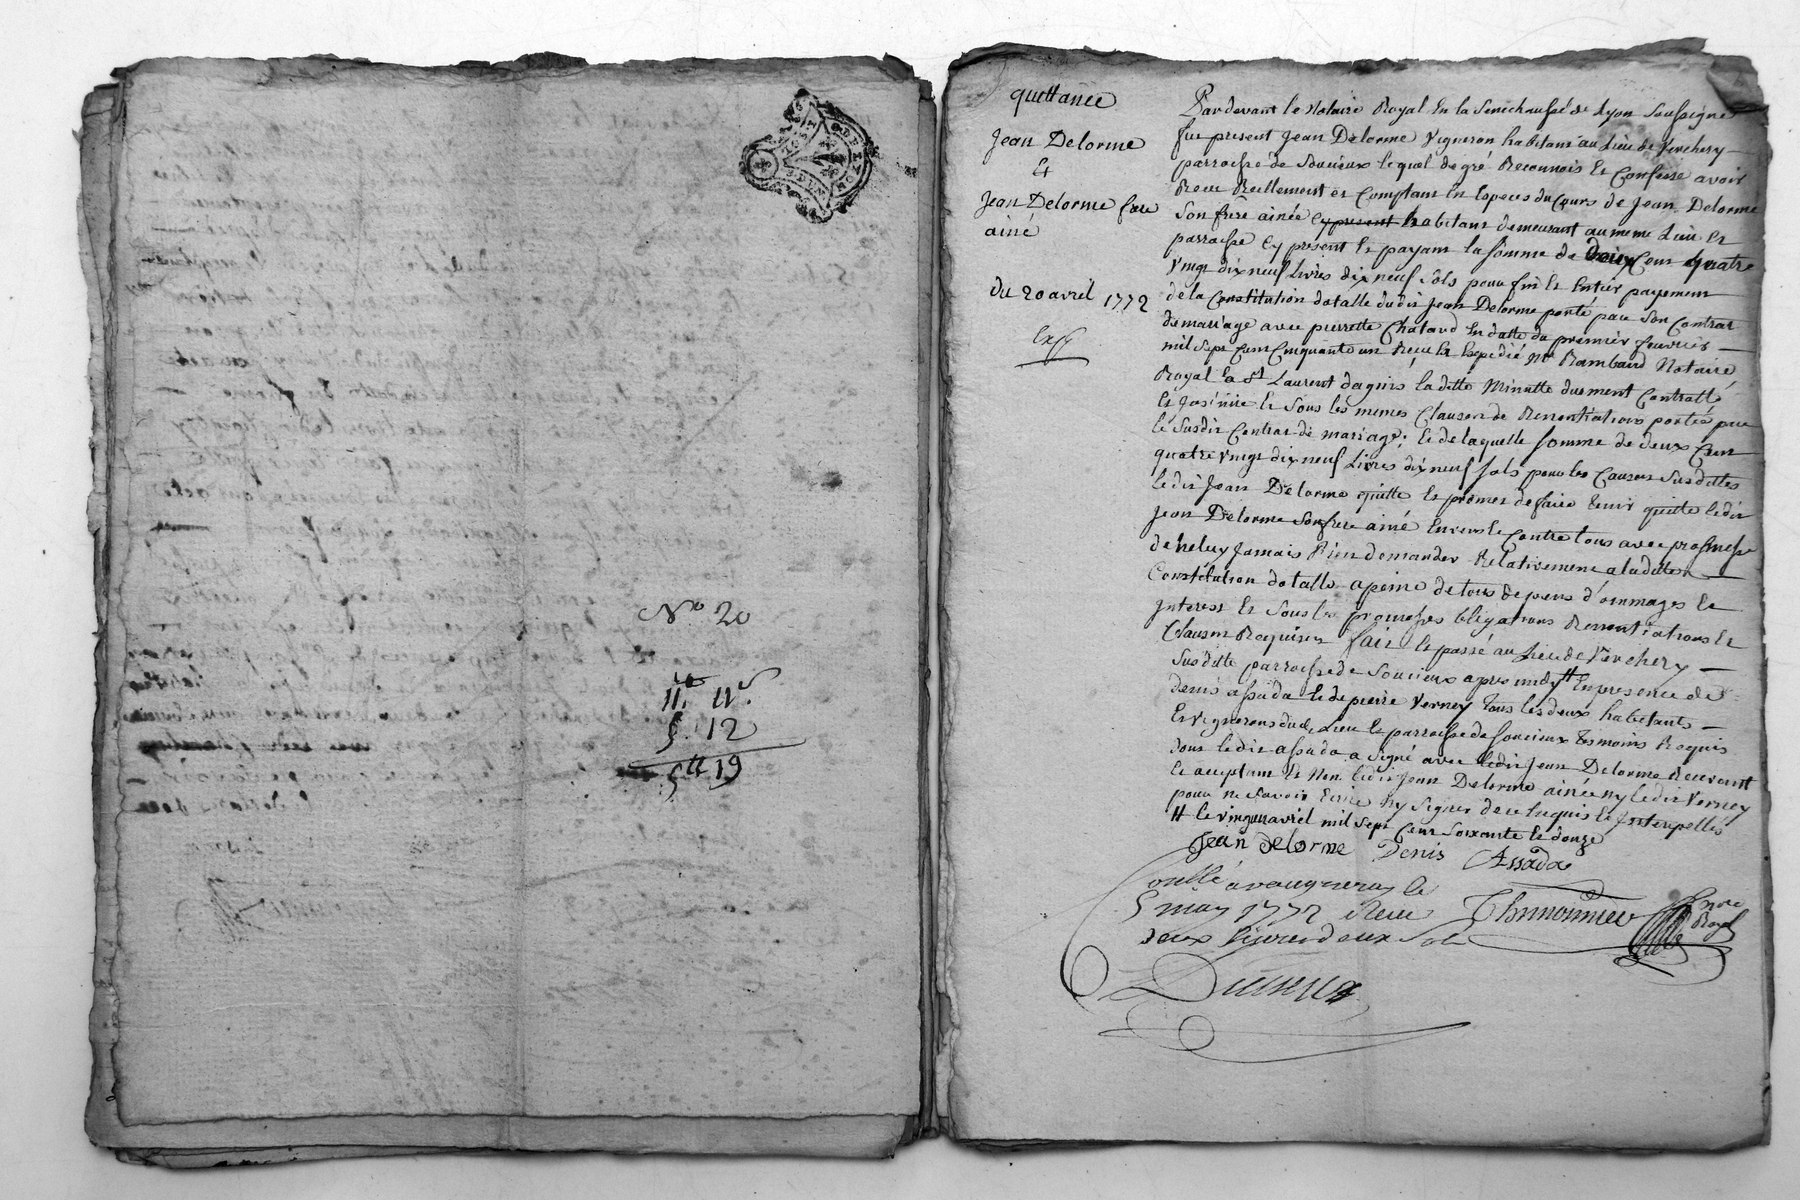 N° 20
11. 11s.
8. 12
5tt 19
quittance
Jean Delorme
Et
Jean Delorme frere
ainé
du 20 avril 1772
Expé
Pardevant le Notaire Royal En la Senechaussé de Lyon Soussigné
fut present Jean Delorme Vigneron habitant au Lieu de Verchery
parroisse de Soucieux lequel de gré Reconnois Et Confesse avoir
Receu Reellement Et Comptant En Especes du Cours de Jean Delorme
Son frere ainée Cy present habitant demeurant au meme Lieu Et
parroisse Cy present Et payant la somme de deux Cent quatre
vingt dix neuf Livres dix neuf sols pour fin Et Entier payement
de la Constitution dotalle dudit Jean Delorme porté par Son Contrat
de mariage avec pierrette Chatard En datte du premier feuvrier
mil sept Cent Cinquante un Receu Et Expedié Me Rambaud Notaire
Royal a St Laurent dagnis ladite Minutte duement Contrallé
Et Jnsinüé Et Sous les memes Clauses de Renontiations portés par
le Susdit Contrat de mariage; Et de laquelle somme de deux Cent
quatre vingt dix neuf Livres dix neuf sols pour les Causes Susdittes
ledit Jean Delorme quitte Et promet de faire tenir quitte ledit
Jean Delorme Son frere ainé Envers Et Contre tous avec promesse
de ne luy Jamais Rien demander Relativement a ladite
Constitution dotalle a peine de tous depens d'ommages Et
Jnterest Et Sous les promesses obligations Renontiations Et
Clauses Requises fait Et passé au Lieu de Verchery
Susditte parroisse de Soucieux apres midy tt En presence de
Denis assada Et de pierre Verney tous les deux habitants
Et vignerons dud. Lieu Et parroisse de Soucieux temoins Requis
dont ledit assada a Signé avec ledit Jean Delorme Recevant
Et acceptant Et Non ledit Jean Delorme ainée ny ledit Verney
pour ne Savoir Ecrire Ny Signer de ce Enquis Et Jnterpellés
tt le vingt avril mil sept Cent Soixante Et douze
Jean delorme Denis Assada
Conllé a vaugneray le
5 may 1772 Receu
deux Livres deux Sols
Thimonnier
Nore
Royal